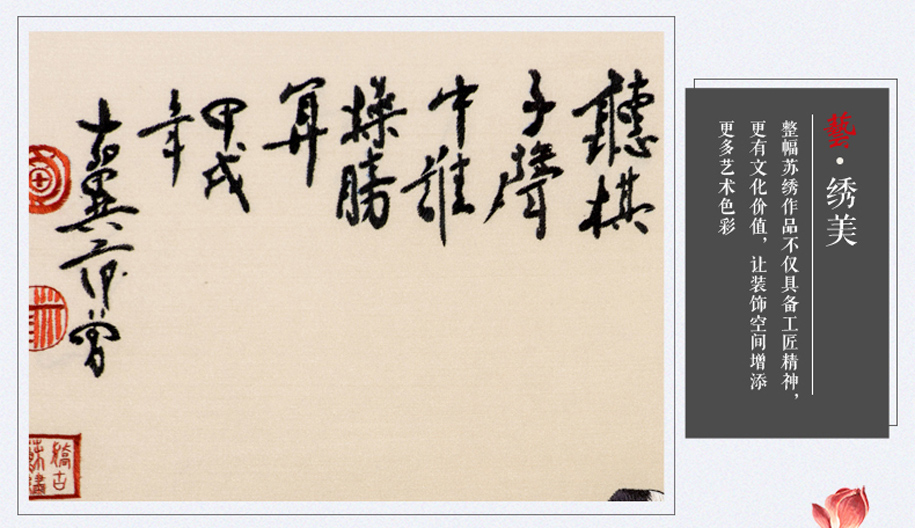 聽棋
子聲
中誰
操勝
算
甲戌
年
十翼范曾
藝·绣美
整幅苏绣作品不仅具备工匠精神，
更有文化价值，让装饰空间增添
更多艺术色彩